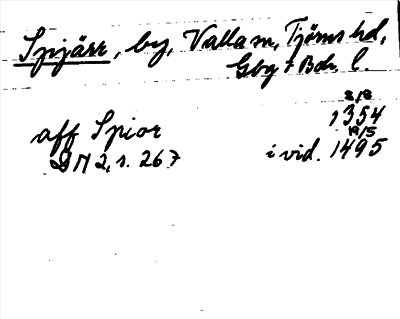 Spjärr, by, Valla sn, Tjörns hd,
Gbg + Boh. l.
8/8
1354
aff Spior
19/5
DN 2, s. 267 i vid. 1495